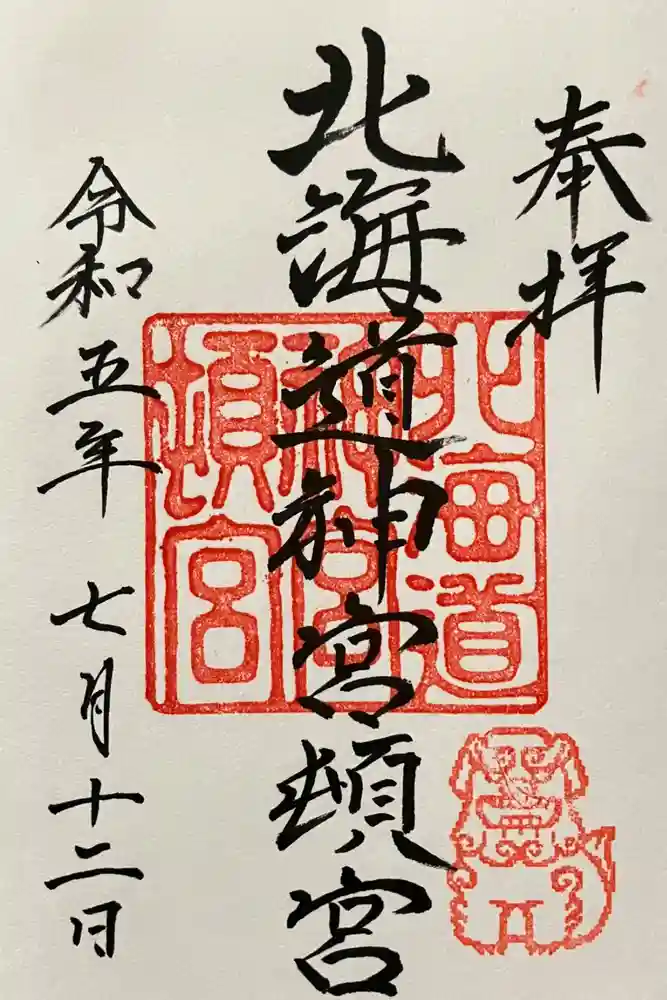 奉拝
北海道神宮頓宮
北海道
神宮
頓宮
令和五年七月十二日